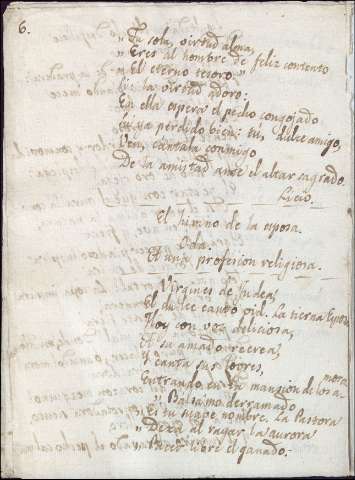 6.
"Tu sola, virtud alma,
"Eres al hombre de feliz contento
"El eterno tesoro."
la virtud adoro:
En ella espera el pecho congojado
perdido bien: tu, dulce amigo,
Ven, cantala conmigo
De la amistad ante el altar sagrado.
Licio.
El himno de la esposa.
Oda.
A una profesion religiosa.
Virgines de Judea,
El dulce canto oid. La tierna Esposa
Hoy con voz deliciosa,
A su amado recrea,
Y canta sus loores,
Entrando en la mansion de los a-
mores.
"Balsamo derramado
"Es tu suave nombre. La Pastora
"Dexa al rayar la aurora
"Pacer libre el ganado:-